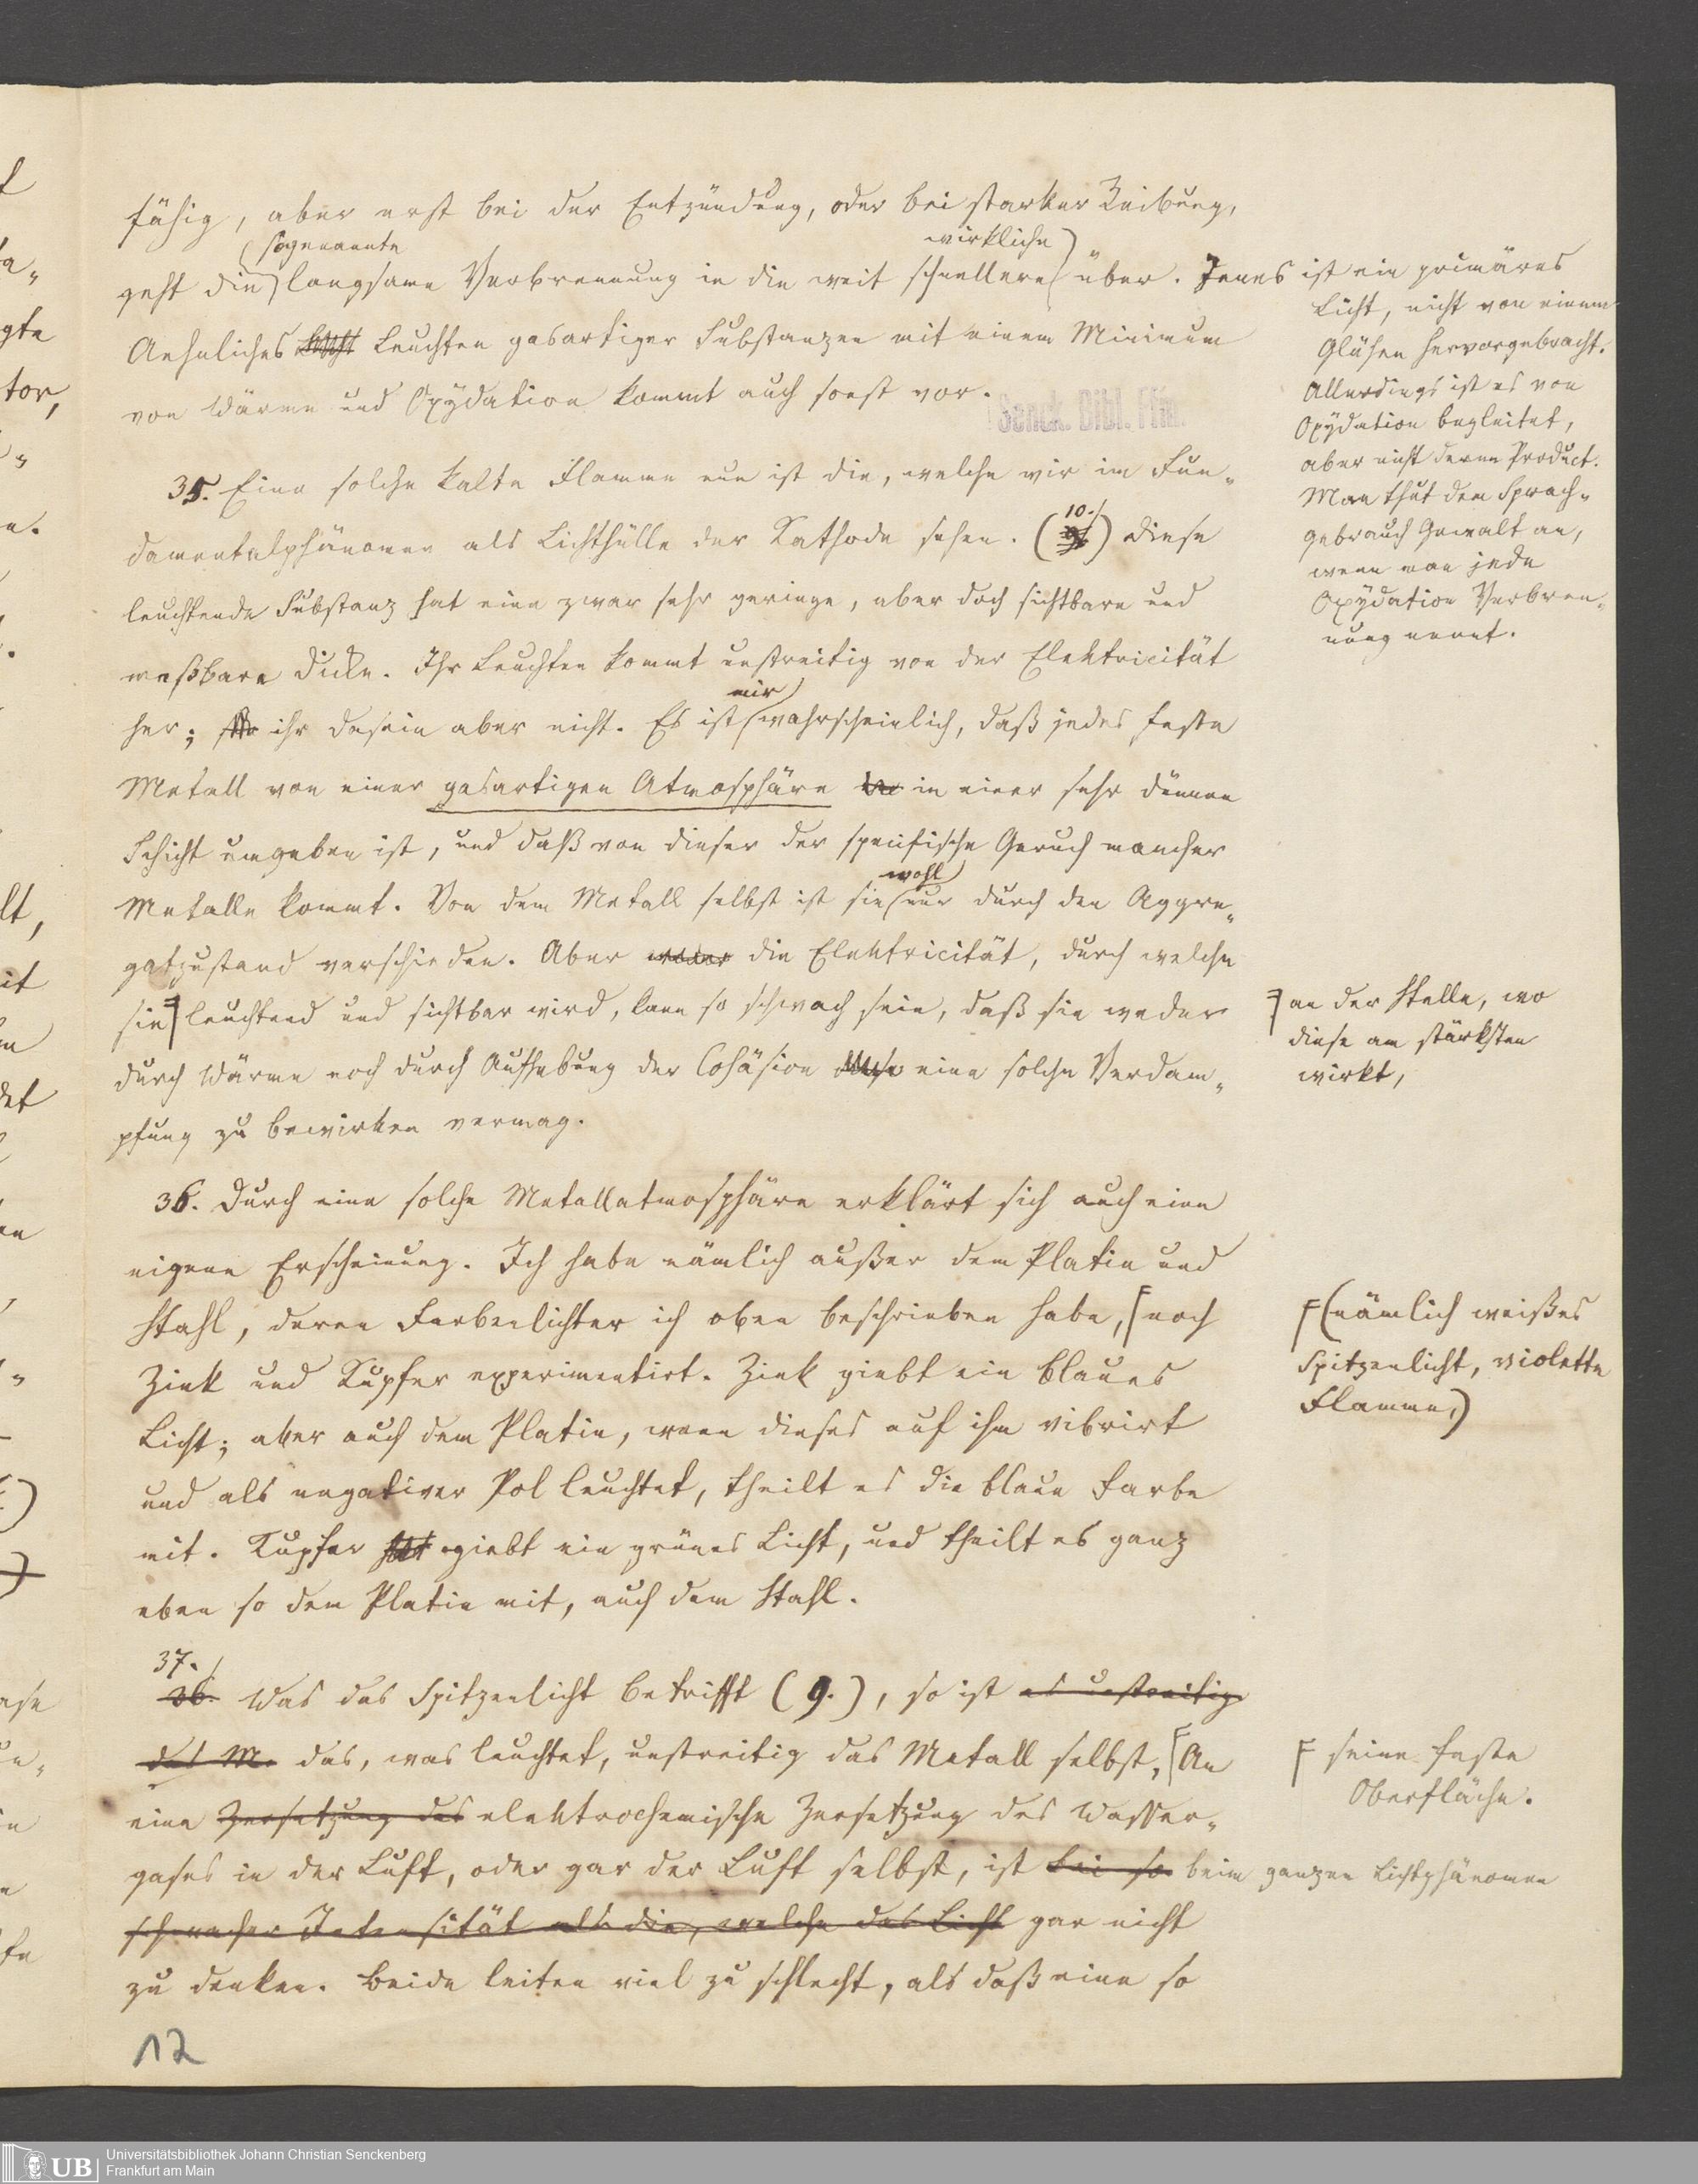 fähig, aber erst bei der Entzündung, oder bei starker Reibung,
(sogenannte
wirkliche)
geht die langsame Verbrennung in die weit schnellere über. Jenes ist ein primäres
Licht, nicht von einem
Glühen hervorgebracht.
Allerdings ist es von
Oxydation begleitet,
aber nicht deren Product.
Man thut dem Sprach-
gebrauch Gewalt an,
wenn man jede
Oxydation Verbren-
nung nennt.
Aehnliches Leuchten gasartiger Substanzen mit einem Minimum
von Wärme und Oxydation kommt auch sonst vor.
Senck. Bibl. Ffm.
35. Eine solche kalte Flamme nun ist die, welche wir im Fun-
damentalphänomen als Lichthülle der Kathode sehen. (10.) Diese
leuchtende Substanz hat eine zwar sehr geringe, aber doch sichtbare und
meßbare Dicke. Ihr Leuchten kommt unstreitig von der Elektricität
mir
her; ihr Dasein aber nicht. Es ist wahrscheinlich, daß jedes feste
Metall von einer gasartigen Atmosphäre in einer sehr dünnen
Schicht umgeben ist, und daß von dieser der specifische Geruch mancher
wohl
Metalle kommt. Von dem Metall selbst ist sie nur durch den Aggre-
gatzustand verschieden. Aber weder die Elektricität, durch welche
sie leuchtend und sichtbar wird, kann so schwach sein, daß sie weder
an der Stelle, wo
diese am stärksten
wirkt,
durch Wärme noch durch Aufhebung der Cohäsion eine solche Verdam-
pfung zu bewirken vermag.
36. Durch eine solche Metallatmosphäre erklärt sich auch eine
eigene Erscheinung. Ich habe nämlich außer dem Platin und
Stahl, deren Farbenlichter ich oben beschrieben habe, noch
(nämlich weißes
Spitzenlicht, violette
Flamme,)
Zink und Kupfer experimentirt. Zink giebt ein blaues
Licht; aber auch dem Platin, wenn dieses auf ihm vibrirt
und als negativer Pol leuchtet, theilt es die blaue Farbe
mit. Kupfer giebt ein grünes Licht, und theilt es ganz
eben so dem Platin mit, auch dem Stahl.
37.
36. Was das Spitzenlicht betrifft (9.), so ist es unstreitig
das M. das, was leuchtet, unstreitig das Metall selbst, An
seine feste
Oberfläche.
eine Zersetzung des elektrochemische Zersetzung des Wasser-
gases in der Luft, oder gar der Luft selbst, ist bei so beim ganzen Lichtphänomen
schwacher Intensität als die, welche das Licht gar nicht
zu denken. Beide leiten viel zu schlecht, als daß eine so
12
UB
Universitätsbibliothek Johann Christian Senckenberg
Frankfurt am Main